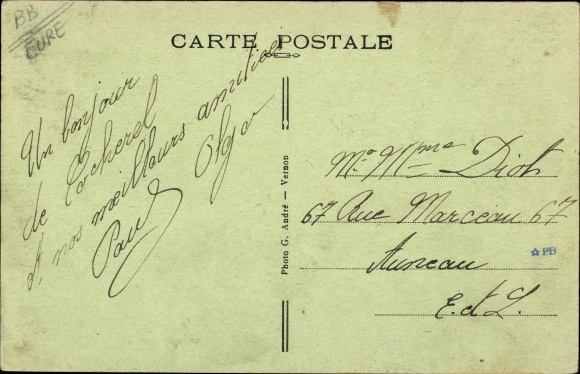 BB
EURE
CARTE POSTALE
Un bonjour
de Cocherel
et nos meilleurs amitiés
Paul Olga
Photo G. André — Vernon
Mr Mme Diot
67 Rue Marceau 67
Auneau
E. et L.
PB